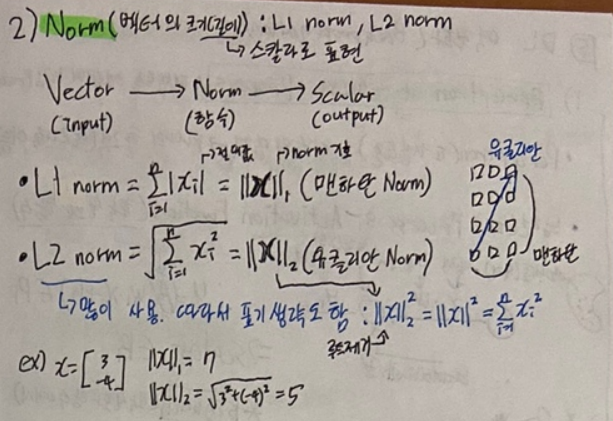 2) Norm(벡터의 크기(길이)) : L1 norm, L2 norm
↳ 스칼라로 표현
Vector → Norm → Scalar
(Input) (함수) (output)
↱절댓값 ↱norm 기호
• L1 norm = \sum_{i=1}^{n} |x_i| = ||x||_1 (맨하탄 Norm)
유클리안
• L2 norm = \sqrt{\sum_{i=1}^{n} x_i^2} = ||x||_2 (유클리안 Norm)
맨하탄
↳ 많이 사용. 따라서 표기 생략도 함 : ||x||_2^2 = ||x||^2 = \sum_{i=1}^{n} x_i^2
루트제거
ex) x = [3 -4] ||x||_1 = 7
||x||_2 = \sqrt{3^2+(-4)^2} = 5